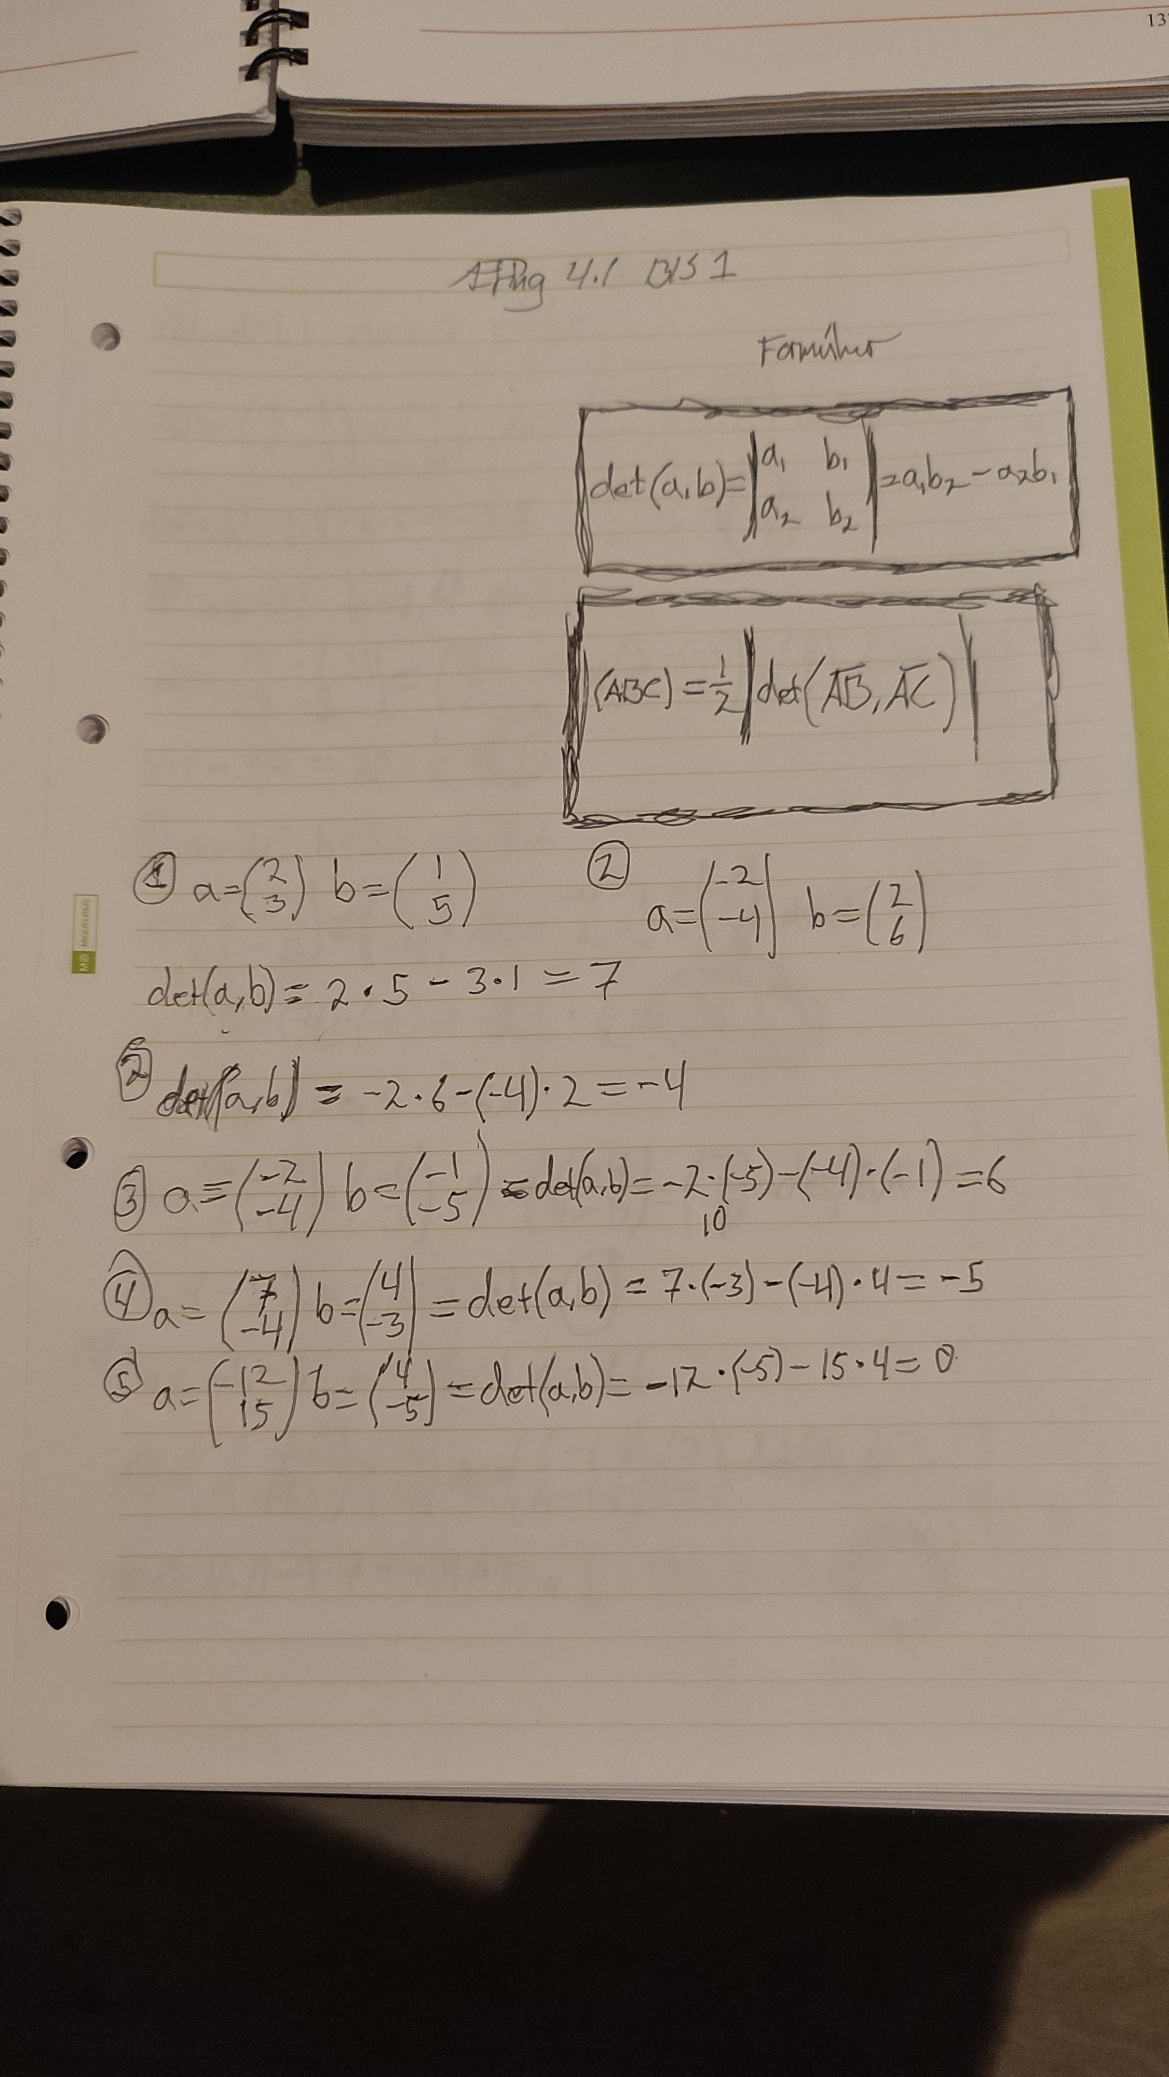 13
4.1 ΒΙΣ 1
det(a,b)=|a₁ b₁
a₂ b₂|=a₁b₂-a₂b₁
(ABC)=1/2|det(AB,AC)|
① a=(2
3) b=(1
5)
② a=(-2
-4) b=(2
6)
det(a,b)=2·5-3·1=7
② det(a,b)=-2·6-(-4)·2=-4
③ a=(-2
-4) b=(-1
-5)=det(a,b)=-2·(-5)-(-4)·(-1)=6
10
④ a=(7
-4) b=(4
-3)=det(a,b)=7·(-3)-(-4)·4=-5
⑤ a=(-12
15) b=(4
-5)=det(a,b)=-12·(-5)-15·4=0
MIQUELRIUS